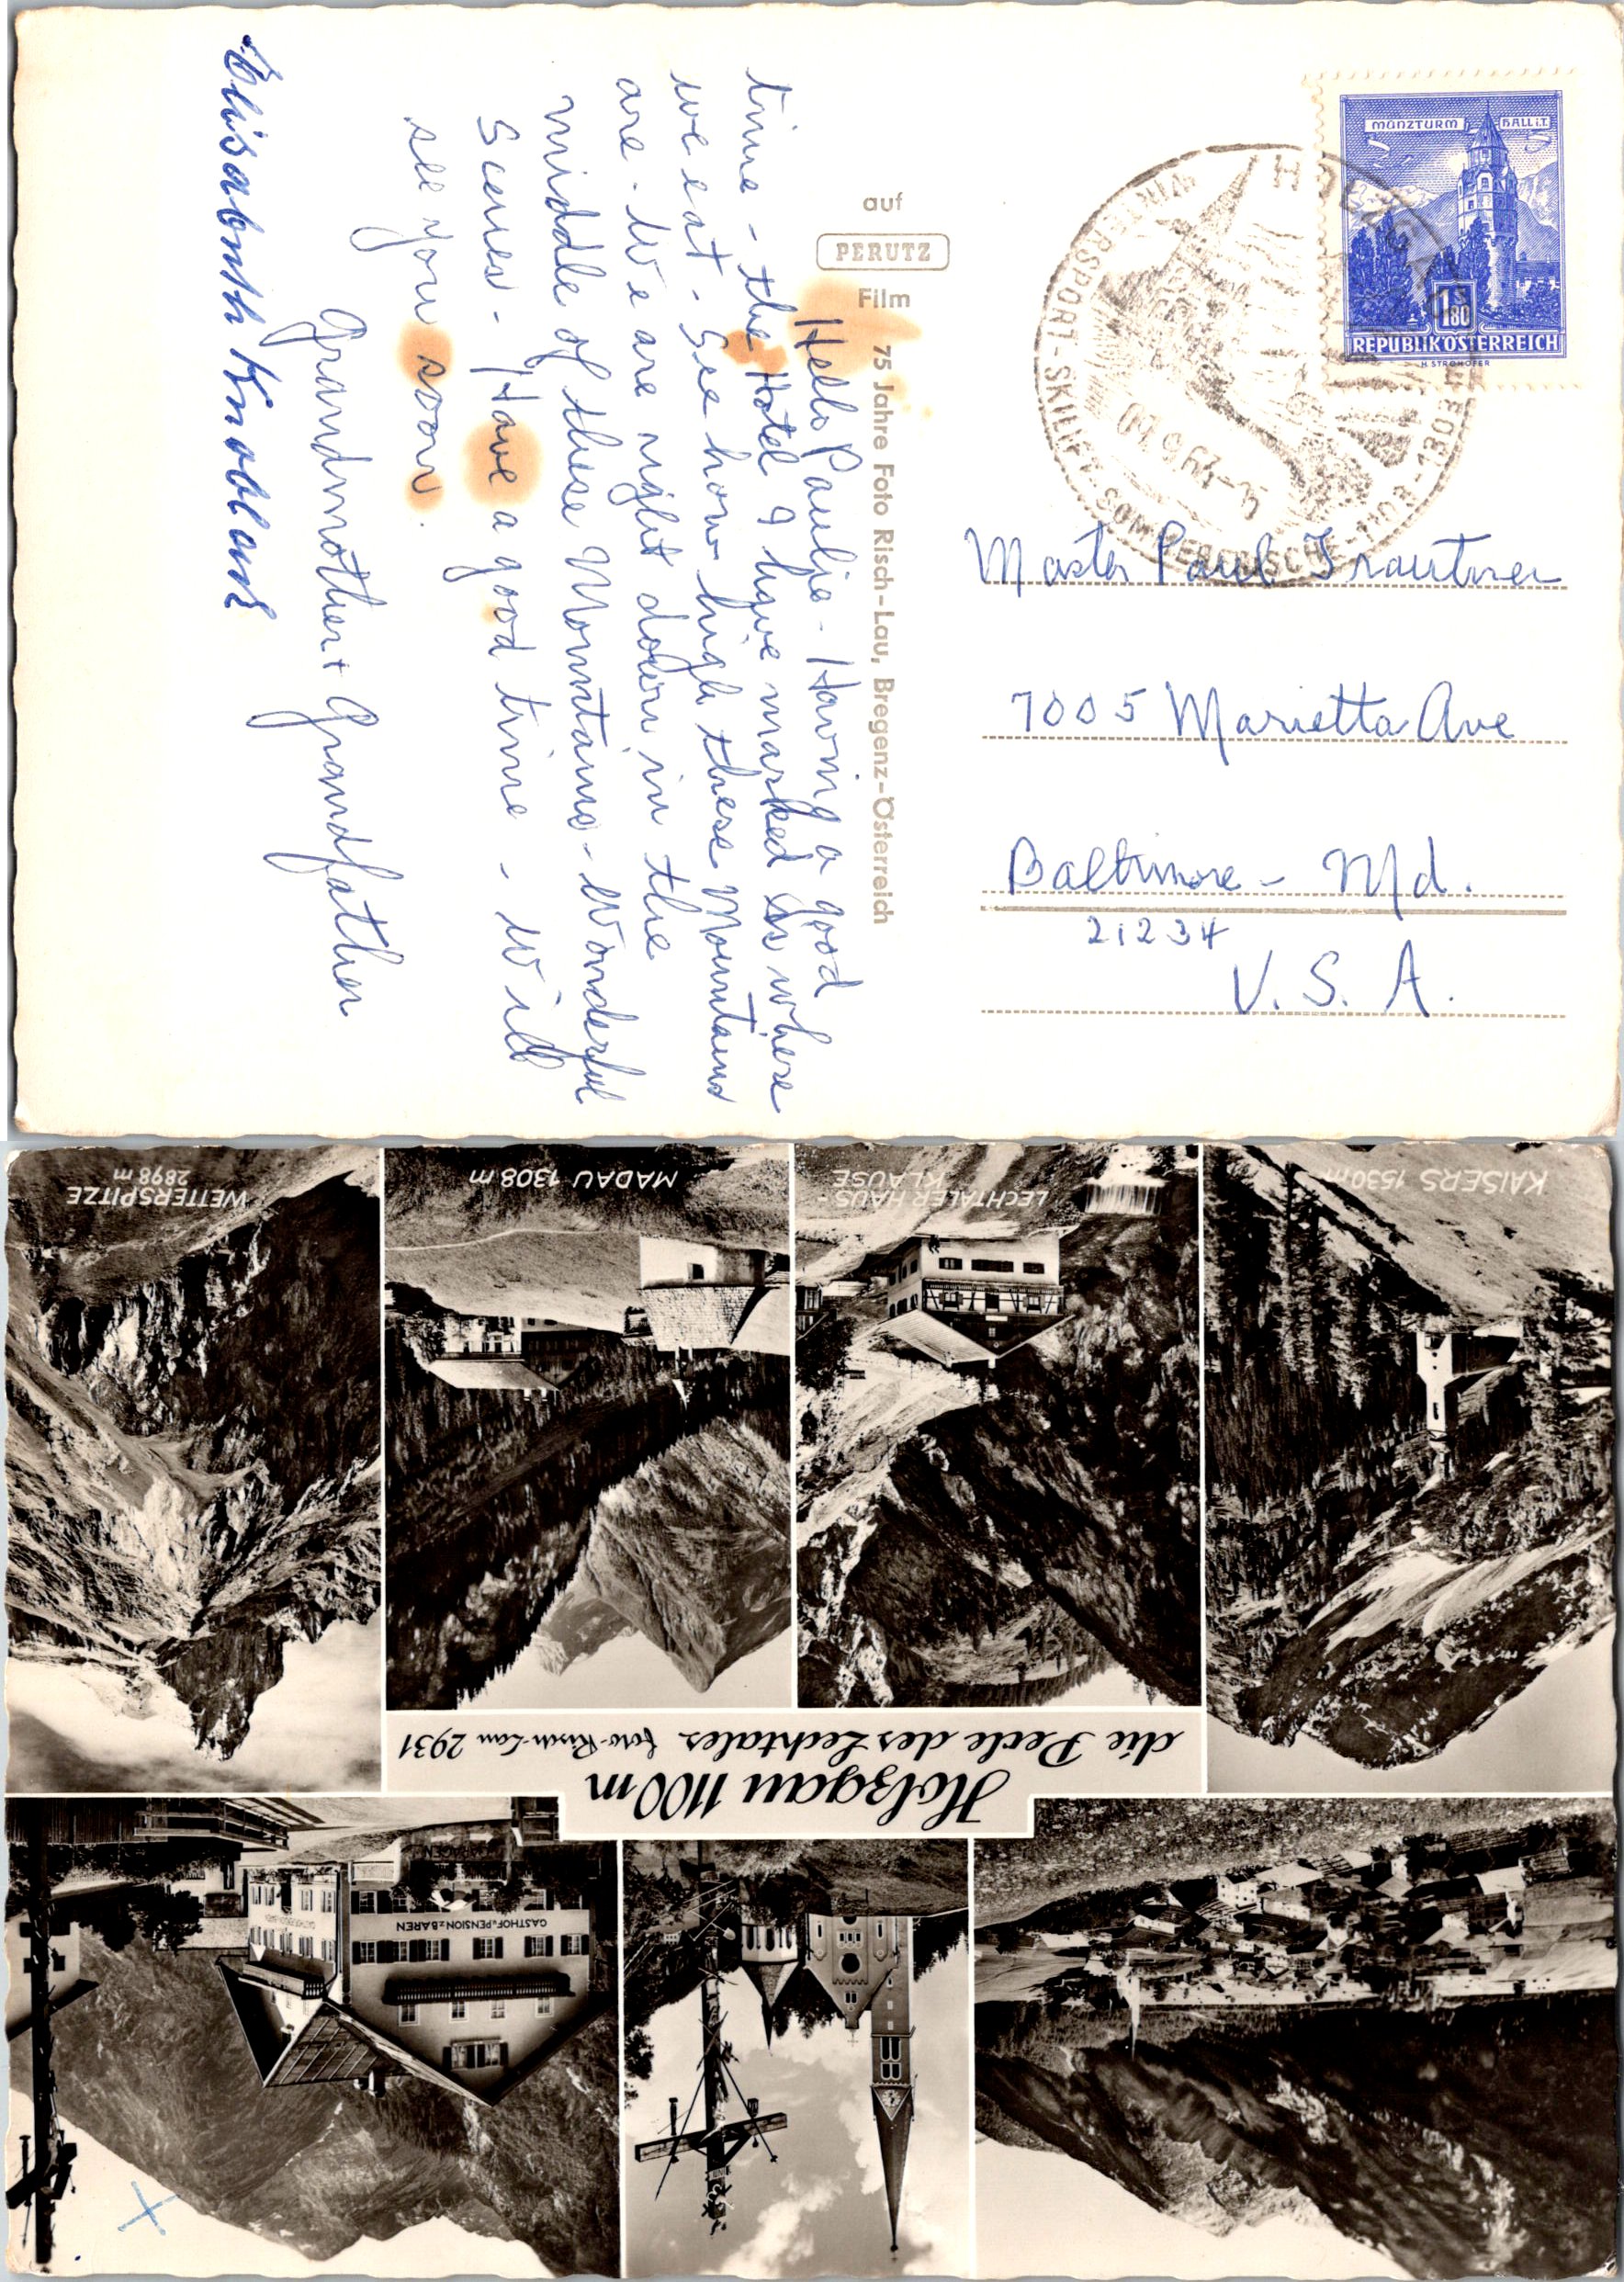 MÜNZTURM HALL i.T.
1S80
REPUBLIK ÖSTERREICH
H. STROHOFER
HOLZGAU
WINTERSPORT - SKILIFT - SOMMERFRISCHE - 1103
auf
PERUTZ
Film
75 Jahre Foto Risch-Lau, Bregenz-Österreich
Hello Paulie - Having a good
time - the Hotel I have marked is where
we eat - See how high these Mountains
are - We are right down in the
middle of these Mountains - Wonderful
Scenes - Have a good time - Will
see you soon.
Grandmother + Grandfather
Elisabeth Knoblauch
Master Paul Trautner
7005 Marietta Ave
Baltimore - Md.
21234
U. S. A.
GASTHOF u. PENSION z. BÄREN
Holzgau 1100 m
die Perle des Lechtales foto Risch-Lau 2931
KAISERS 1530 m
LECHTALER HAUS-
KLAUSE
MADAU 1308 m
WETTERSPITZE
2898 m